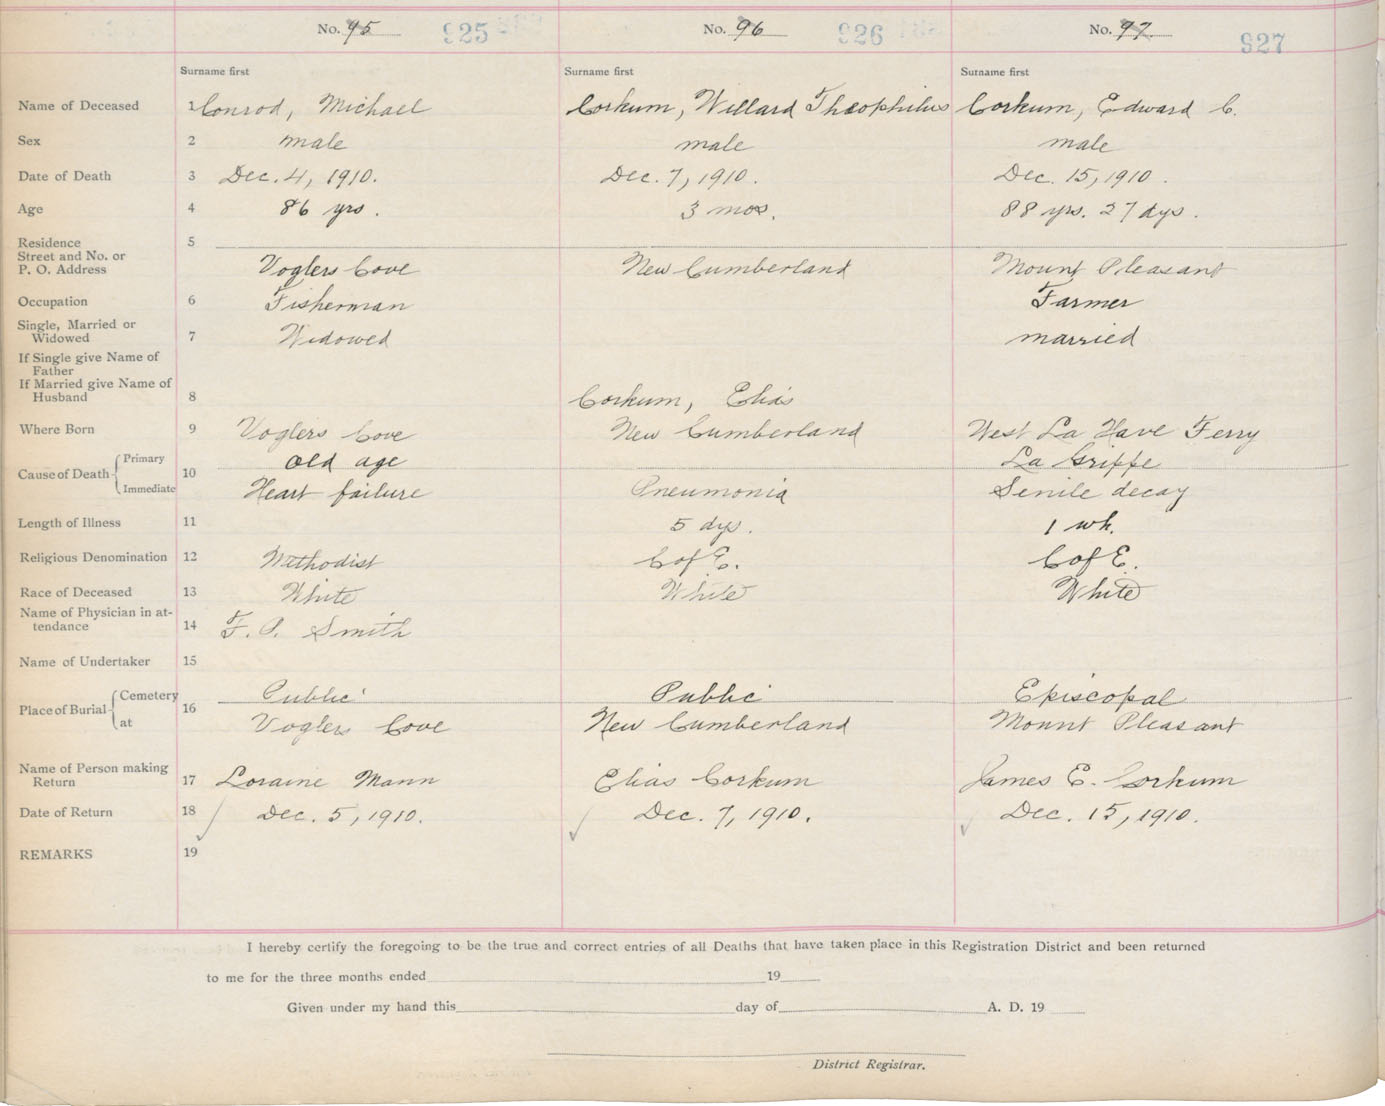 No. 95 925 No. 96 926 No. 97 927
Surname first Surname first Surname first
Name of Deceased 1 Conrod, Michael Corkum, Willard Theophilus Corkum, Edward C.
Sex 2 male male male
Date of Death 3 Dec. 4, 1910. Dec. 7, 1910. Dec. 15, 1910.
Age 4 86 yrs. 3 mos. 88 yrs. 27 dys.
Residence 5
Street and No. or
P. O. Address Voglers Cove New Cumberland Mount Pleasant
Occupation 6 Fisherman Farmer
Single, Married or
Widowed 7 Widowed married
If Single give Name of
Father
If Married give Name of
Husband 8 Corkum, Elias
Where Born 9 Voglers Cove New Cumberland West La Have Ferry
Cause of Death Primary 10 Old age La Grippe
Immediate Heart failure Pneumonia Senile decay
Length of Illness 11 5 dys. 1 wk.
Religious Denomination 12 Methodist C of E. C of E.
Race of Deceased 13 White White White
Name of Physician in at-
tendance 14 F. P. Smith
Name of Undertaker 15
Place of Burial Cemetery 16 Public Public Episcopal
at Voglers Cove New Cumberland Mount Pleasant
Name of Person making
Return 17 Loraine Mann Elias Corkum James E. Corkum
Date of Return 18 Dec. 5, 1910. Dec. 7, 1910. Dec. 15, 1910.
REMARKS 19
I hereby certify the foregoing to be the true and correct entries of all Deaths that have taken place in this Registration District and been returned
to me for the three months ended 19
Given under my hand this day of A. D. 19
District Registrar.